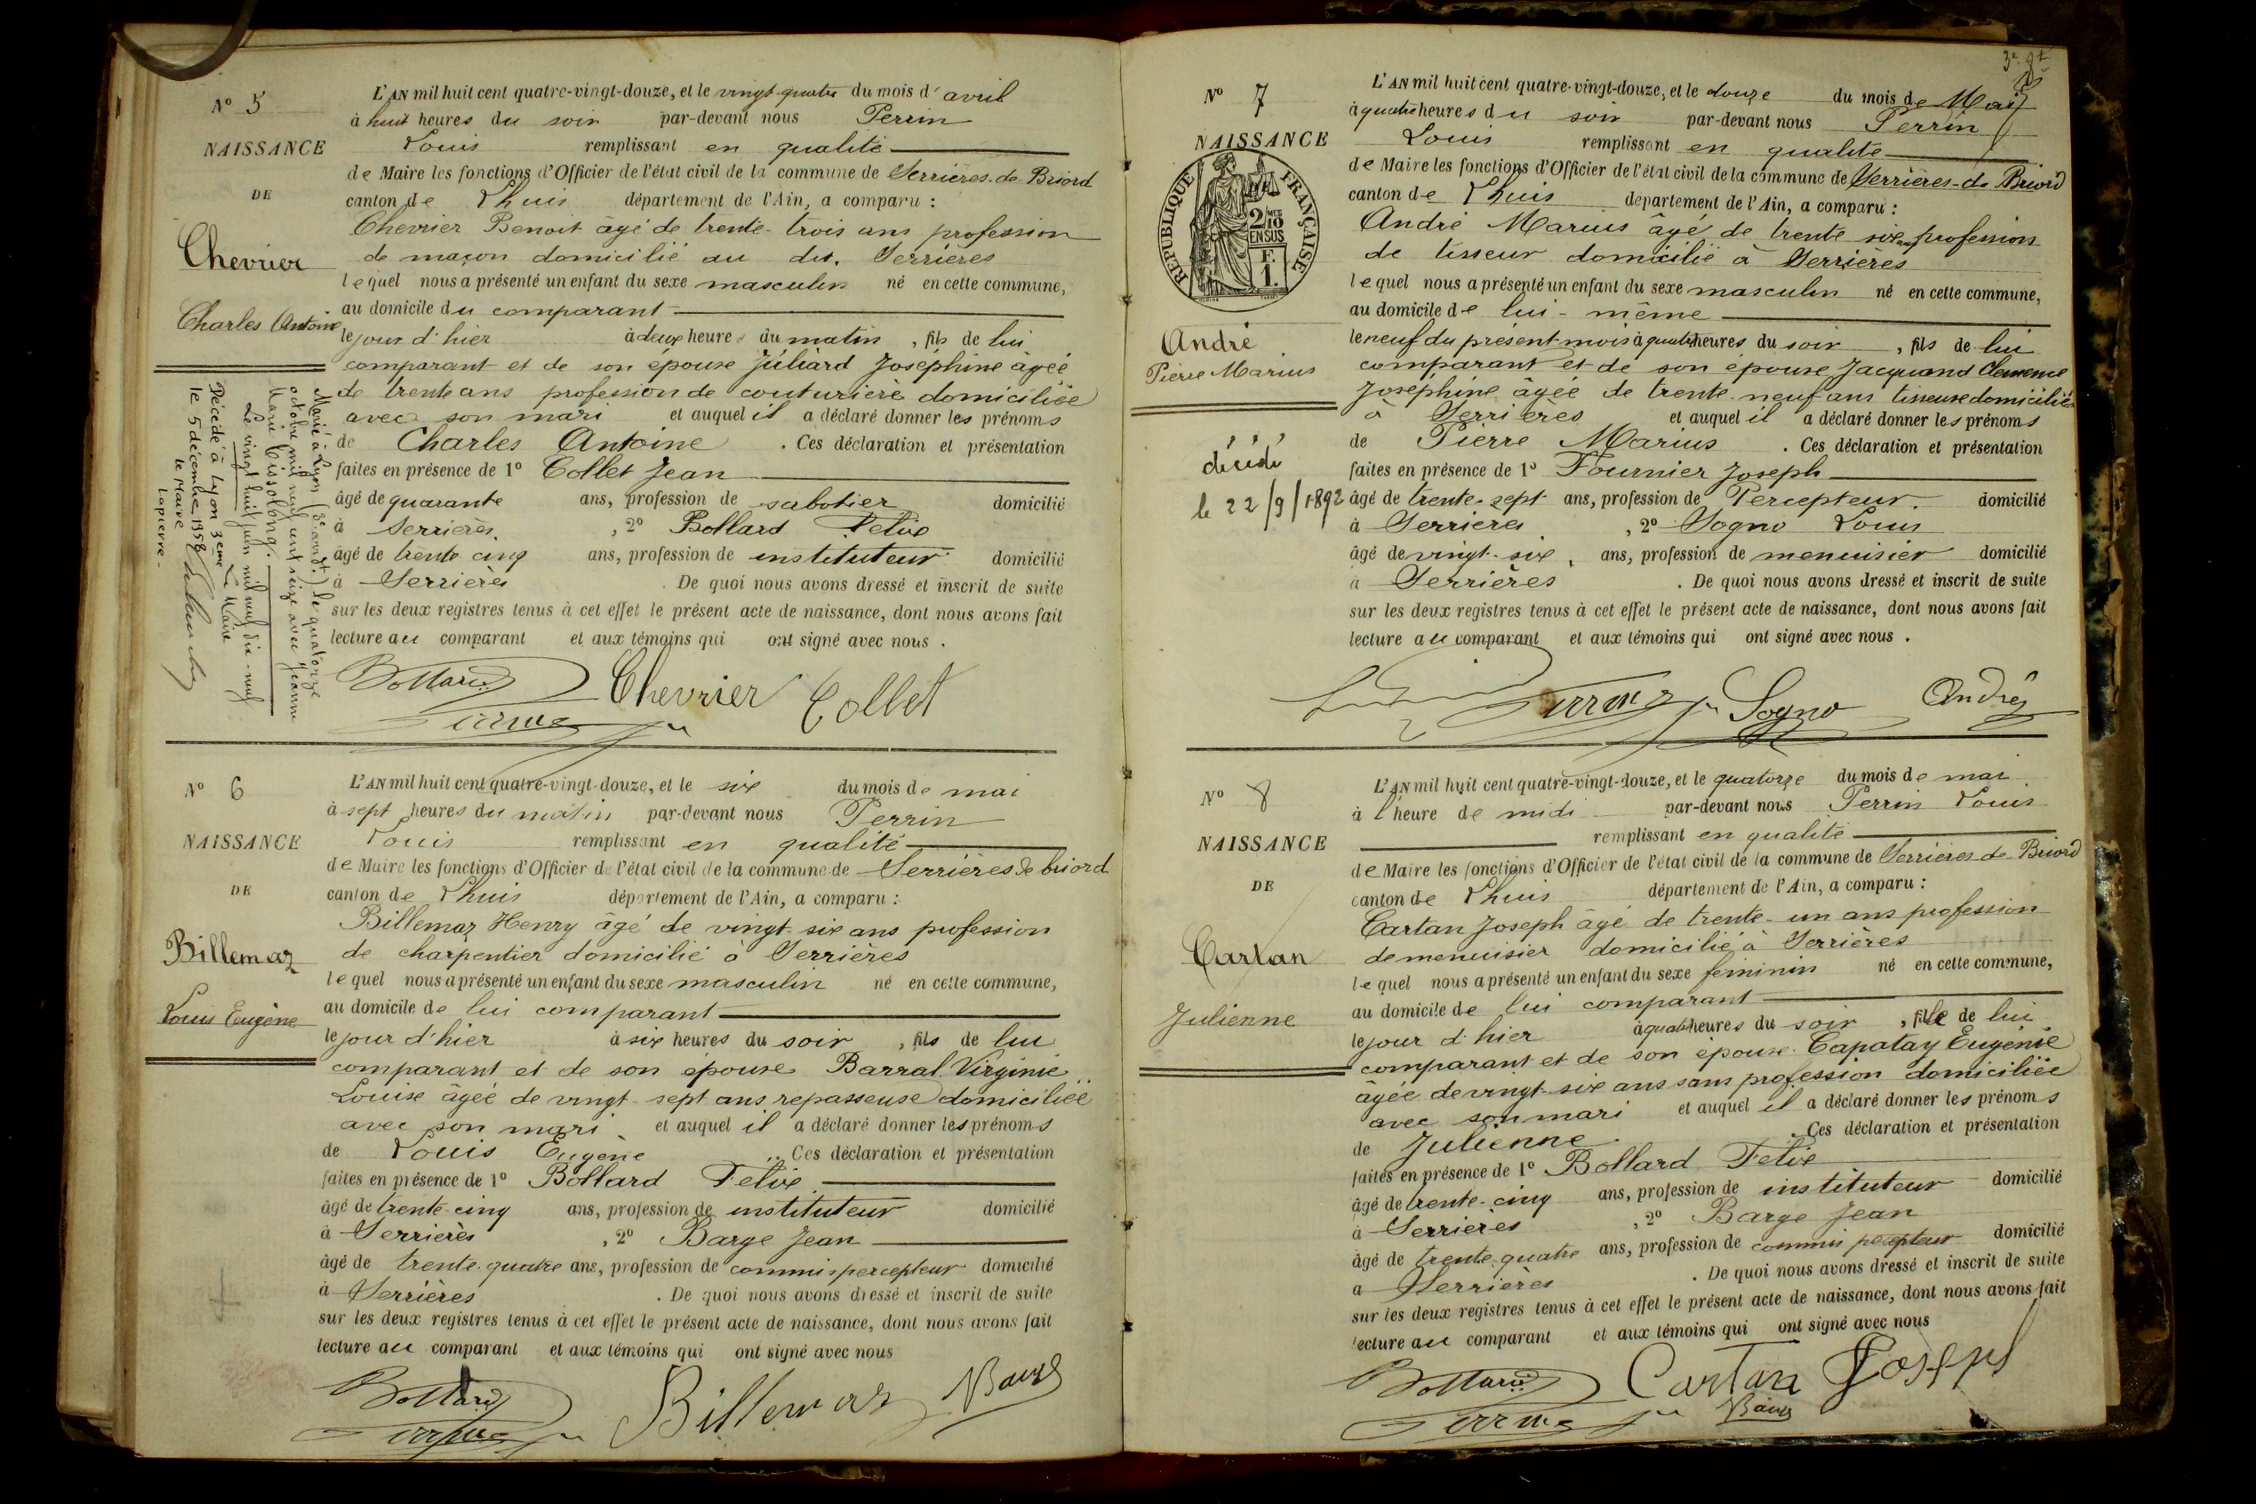 N° 5
NAISSANCE
DE
Chevrier
Charles Antoine
L'AN mil huit cent quatre-vingt-douze, et le vingt-quatre du mois d'avril
à huit heures du soir par-devant nous Perrin
Louis remplissant en qualité
de Maire les fonctions d'Officier de l'état civil de la commune de Serrières-de-Briord
canton de Lhuis département de l'Ain, a comparu :
Chevrier Benoit âgé de trente-trois ans profession
de maçon domicilié au dit. Serrières
lequel nous a présenté un enfant du sexe masculin né en cette commune,
au domicile du comparant
le jour d'hier à deux heures du matin, fils de lui
comparant et de son épouse Juliard Joséphine âgée
de trente ans profession de couturière domiciliée
avec son mari et auquel il a déclaré donner les prénoms
de Charles Antoine. Ces déclaration et présentation
faites en présence de 1° Collet Jean
âgé de quarante ans, profession de sabotier domicilié
à Serrières, 2° Bollard Félix
âgé de trente cinq ans, profession de instituteur domicilié
à Serrières. De quoi nous avons dressé et inscrit de suite
sur les deux registres tenus à cet effet le présent acte de naissance, dont nous avons fait
lecture au comparant et aux témoins qui ont signé avec nous.
Bollard Chevrier Collet
Perrin
Marié à Lyon (3e arrondt.) le quatorze
octobre mil neuf cent seize avec Jeanne
Marie
Le vingt huit juin mil neuf dix-neuf
Le Maire
Décédé à Lyon 3ème
le 5 décembre 1958
le Maire
Lapierre.
N° 6
NAISSANCE
DE
Billemaz
Louis Eugène
L'AN mil huit cent quatre-vingt-douze, et le six du mois de mai
à sept heures du matin par-devant nous Perrin
Louis remplissant en qualité
de Maire les fonctions d'Officier de l'état civil de la commune de Serrières de briord
canton de Lhuis département de l'Ain, a comparu :
Billemaz Henry âgé de vingt-six ans profession
de charpentier domicilié à Serrières
lequel nous a présenté un enfant du sexe masculin né en cette commune,
au domicile de lui comparant
le jour d'hier à six heures du soir, fils de lui
comparant et de son épouse Barral Virginie
Louise âgée de vingt-sept ans repasseuse domiciliée
avec son mari et auquel il a déclaré donner les prénoms
de Louis Eugène. Ces déclaration et présentation
faites en présence de 1° Bollard Félix
âgé de trente-cinq ans, profession de instituteur domicilié
à Serrières, 2° Barge Jean
âgé de trente-quatre ans, profession de commis percepteur domicilié
à Serrières. De quoi nous avons dressé et inscrit de suite
sur les deux registres tenus à cet effet le présent acte de naissance, dont nous avons fait
lecture au comparant et aux témoins qui ont signé avec nous
Bollard Billemaz Barge
Perrin
N° 7
NAISSANCE
RÉPUBLIQUE FRANÇAISE
2/10
EN SUS
F.
1.
André
Pierre Marius
décédé
le 22/9/1892
L'AN mil huit cent quatre-vingt-douze, et le douze du mois de Mai
à quatre heures du soir par-devant nous Perrin
Louis remplissant en qualité
de Maire les fonctions d'Officier de l'état civil de la commune de Serrières-de Briord
canton de Lhuis département de l'Ain, a comparu :
André Marius âgé de trente six ans profession
de tisseur domicilié à Serrières
lequel nous a présenté un enfant du sexe masculin né en cette commune,
au domicile de lui-même
le neuf du présent mois à quatre heures du soir, fils de lui
comparant et de son épouse Jacquand Clémence
Joséphine âgée de trente-neuf ans tisseuse domiciliée
à Serrières et auquel il a déclaré donner les prénoms
de Pierre Marius. Ces déclaration et présentation
faites en présence de 1° Fournier Joseph
âgé de trente-sept ans, profession de Percepteur domicilié
à Serrières, 2° Sogno Louis
âgé de vingt-six, ans, profession de menuisier domicilié
à Serrières. De quoi nous avons dressé et inscrit de suite
sur les deux registres tenus à cet effet le présent acte de naissance, dont nous avons fait
lecture au comparant et aux témoins qui ont signé avec nous.
Perrin Sogno André
N° 8
NAISSANCE
DE
Cartan
Julienne
L'AN mil huit cent quatre-vingt-douze, et le quatorze du mois de mai
à l'heure de midi par-devant nous Perrin Louis
remplissant en qualité
de Maire les fonctions d'Officier de l'état civil de la commune de Serrières-de-Briord
canton de Lhuis département de l'Ain, a comparu :
Cartan Joseph âgé de trente-un ans profession
de menuisier domicilié à Serrières
lequel nous a présenté un enfant du sexe féminin né en cette commune,
au domicile de lui comparant
le jour d'hier à quatre heures du soir, fille de lui
comparant et de son épouse Capatay Eugénie
âgée de vingt-six ans sans profession domiciliée
avec son mari et auquel il a déclaré donner les prénoms
de Julienne. Ces déclaration et présentation
faites en présence de 1° Bollard Félix
âgé de trente-cinq ans, profession de instituteur domicilié
à Serrières, 2° Barge Jean
âgé de trente quatre ans, profession de commis percepteur domicilié
a Serrières. De quoi nous avons dressé et inscrit de suite
sur les deux registres tenus à cet effet le présent acte de naissance, dont nous avons fait
lecture au comparant et aux témoins qui ont signé avec nous
Bollard Cartan Joseph
Perrin Barge